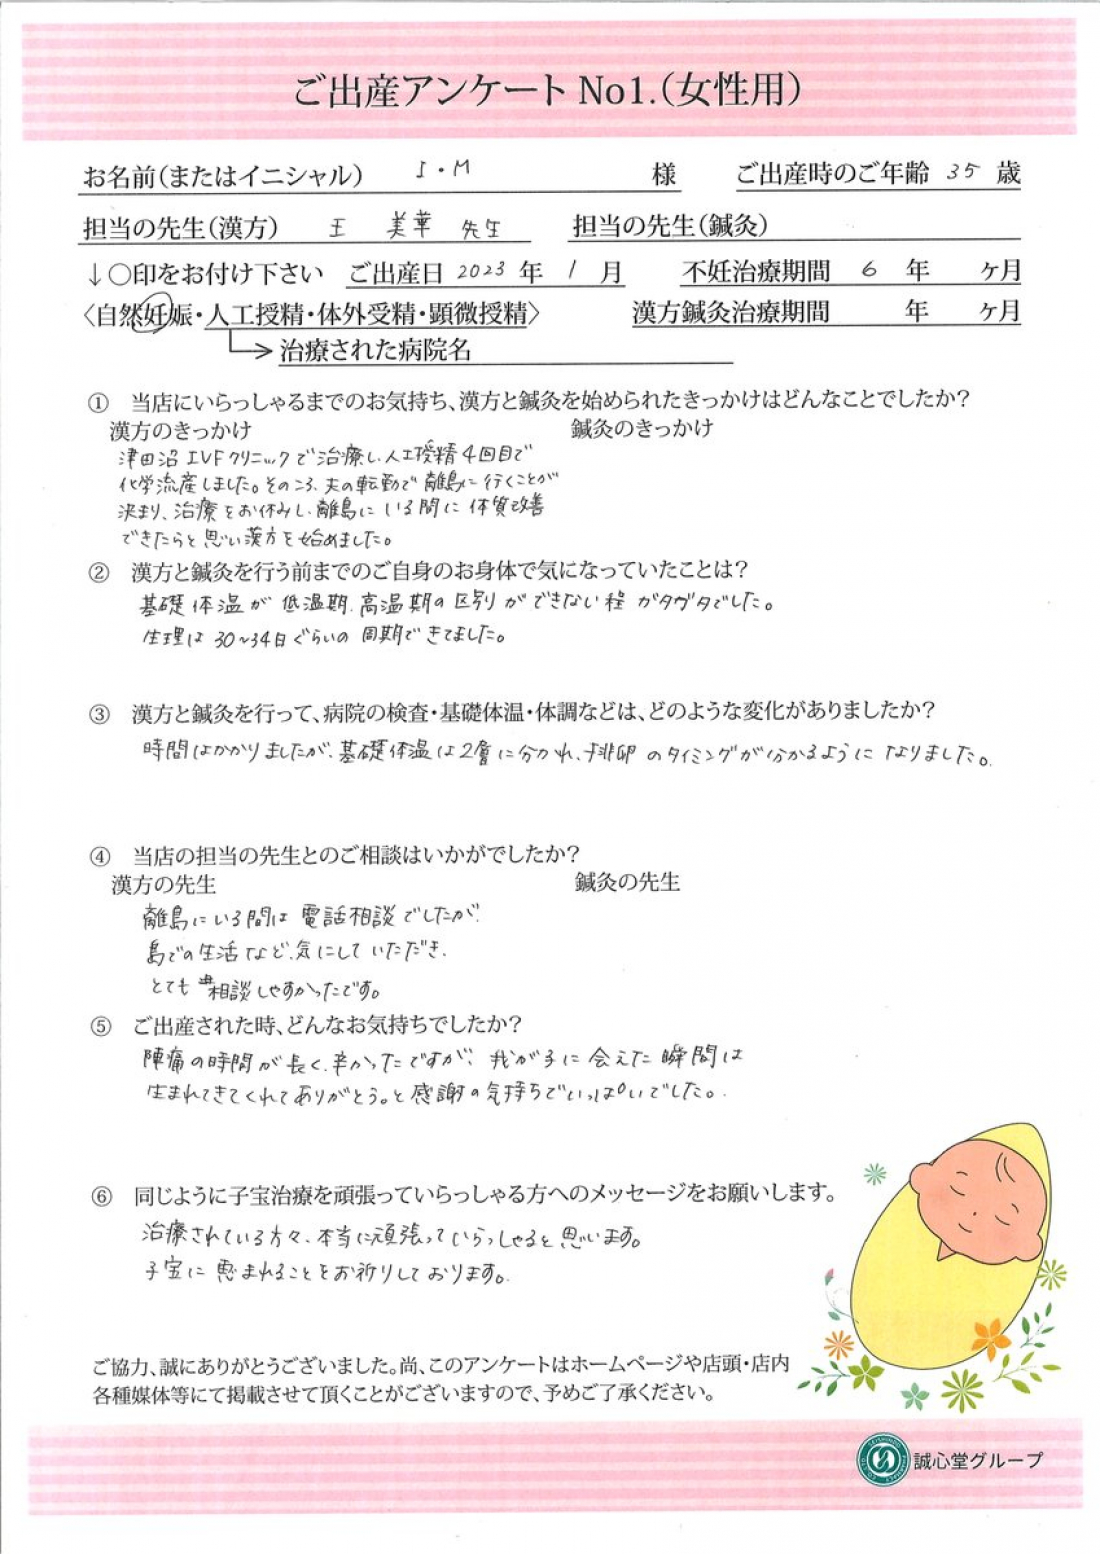 ご出産アンケート No1.(女性用)
お名前(またはイニシャル) I・M 様 ご出産時のご年齢 35 歳
担当の先生(漢方) 王 美華 先生 担当の先生(鍼灸)
↓○印をお付け下さい ご出産日 2023 年 1 月 不妊治療期間 6 年 ヶ月
〈自然妊娠・人工授精・体外受精・顕微授精〉 漢方鍼灸治療期間 年 ヶ月
治療された病院名
① 当店にいらっしゃるまでのお気持ち、漢方と鍼灸を始められたきっかけはどんなことでしたか?
漢方のきっかけ 鍼灸のきっかけ
津田沼IVFクリニックで治療し、人工授精4回目で
化学流産しました。そのころ、夫の転勤で離島に行くことが
決まり、治療をお休みし、離島にいる間に体質改善
できたらと思い漢方を始めました。
② 漢方と鍼灸を行う前までのご自身のお身体で気になっていたことは?
基礎体温が低温期、高温期の区別ができない程ガタガタでした。
生理は30~34日ぐらいの周期できてました。
③ 漢方と鍼灸を行って、病院の検査・基礎体温・体調などは、どのような変化がありましたか?
時間はかかりましたが、基礎体温は2層に分かれ、排卵のタイミングが分かるようになりました。
④ 当店の担当の先生とのご相談はいかがでしたか?
漢方の先生 鍼灸の先生
離島にいる間は電話相談でしたが、
島での生活など、気にしていただき、
とても相談しやすかったです。
⑤ ご出産された時、どんなお気持ちでしたか?
陣痛の時間が長く、辛かったですが、我が子に会えた瞬間は
生まれてきてくれてありがとう。と感謝の気持ちでいっぱいでした。
⑥ 同じように子宝治療を頑張っていらっしゃる方へのメッセージをお願いします。
治療されている方々、本当に頑張っていらっしゃると思います。
子宝に恵まれることをお祈りしております。
ご協力、誠にありがとうございました。尚、このアンケートはホームページや店頭・店内
各種媒体等にて掲載させて頂くことがございますので、予めご了承ください。
誠心堂グループ